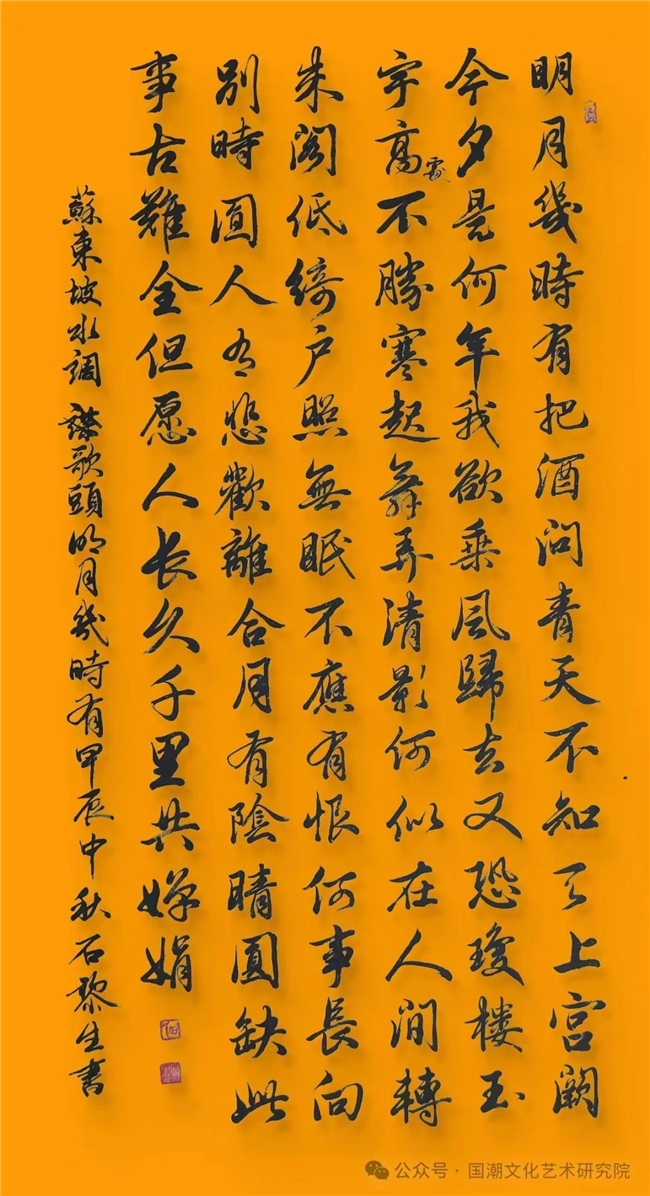 明月幾時有把酒問青天不知天上宫闕
今夕是何年我欲乘風歸去又恐瓊樓玉
宇高處不勝寒起舞弄清影何似在人間轉
朱閣低綺户照無眠不應有恨何事長向
别時圓人有悲歡離合月有陰晴圓缺此
事古難全但愿人长久千里共嬋娟
蘇東坡水調歌頭明月幾時有甲辰中秋石黎生書
公众号·国潮文化艺术研究院